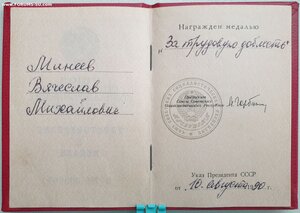 www.FORUMS-SU.com
Минеев
Вячеслав
Михайлович
Награжден медалью
„За трудовую доблесть"
Президент
Союза Советских
Социалистических Республик
М. Горбачев
Указ Президента СССР
от „10" августа 1990 г.